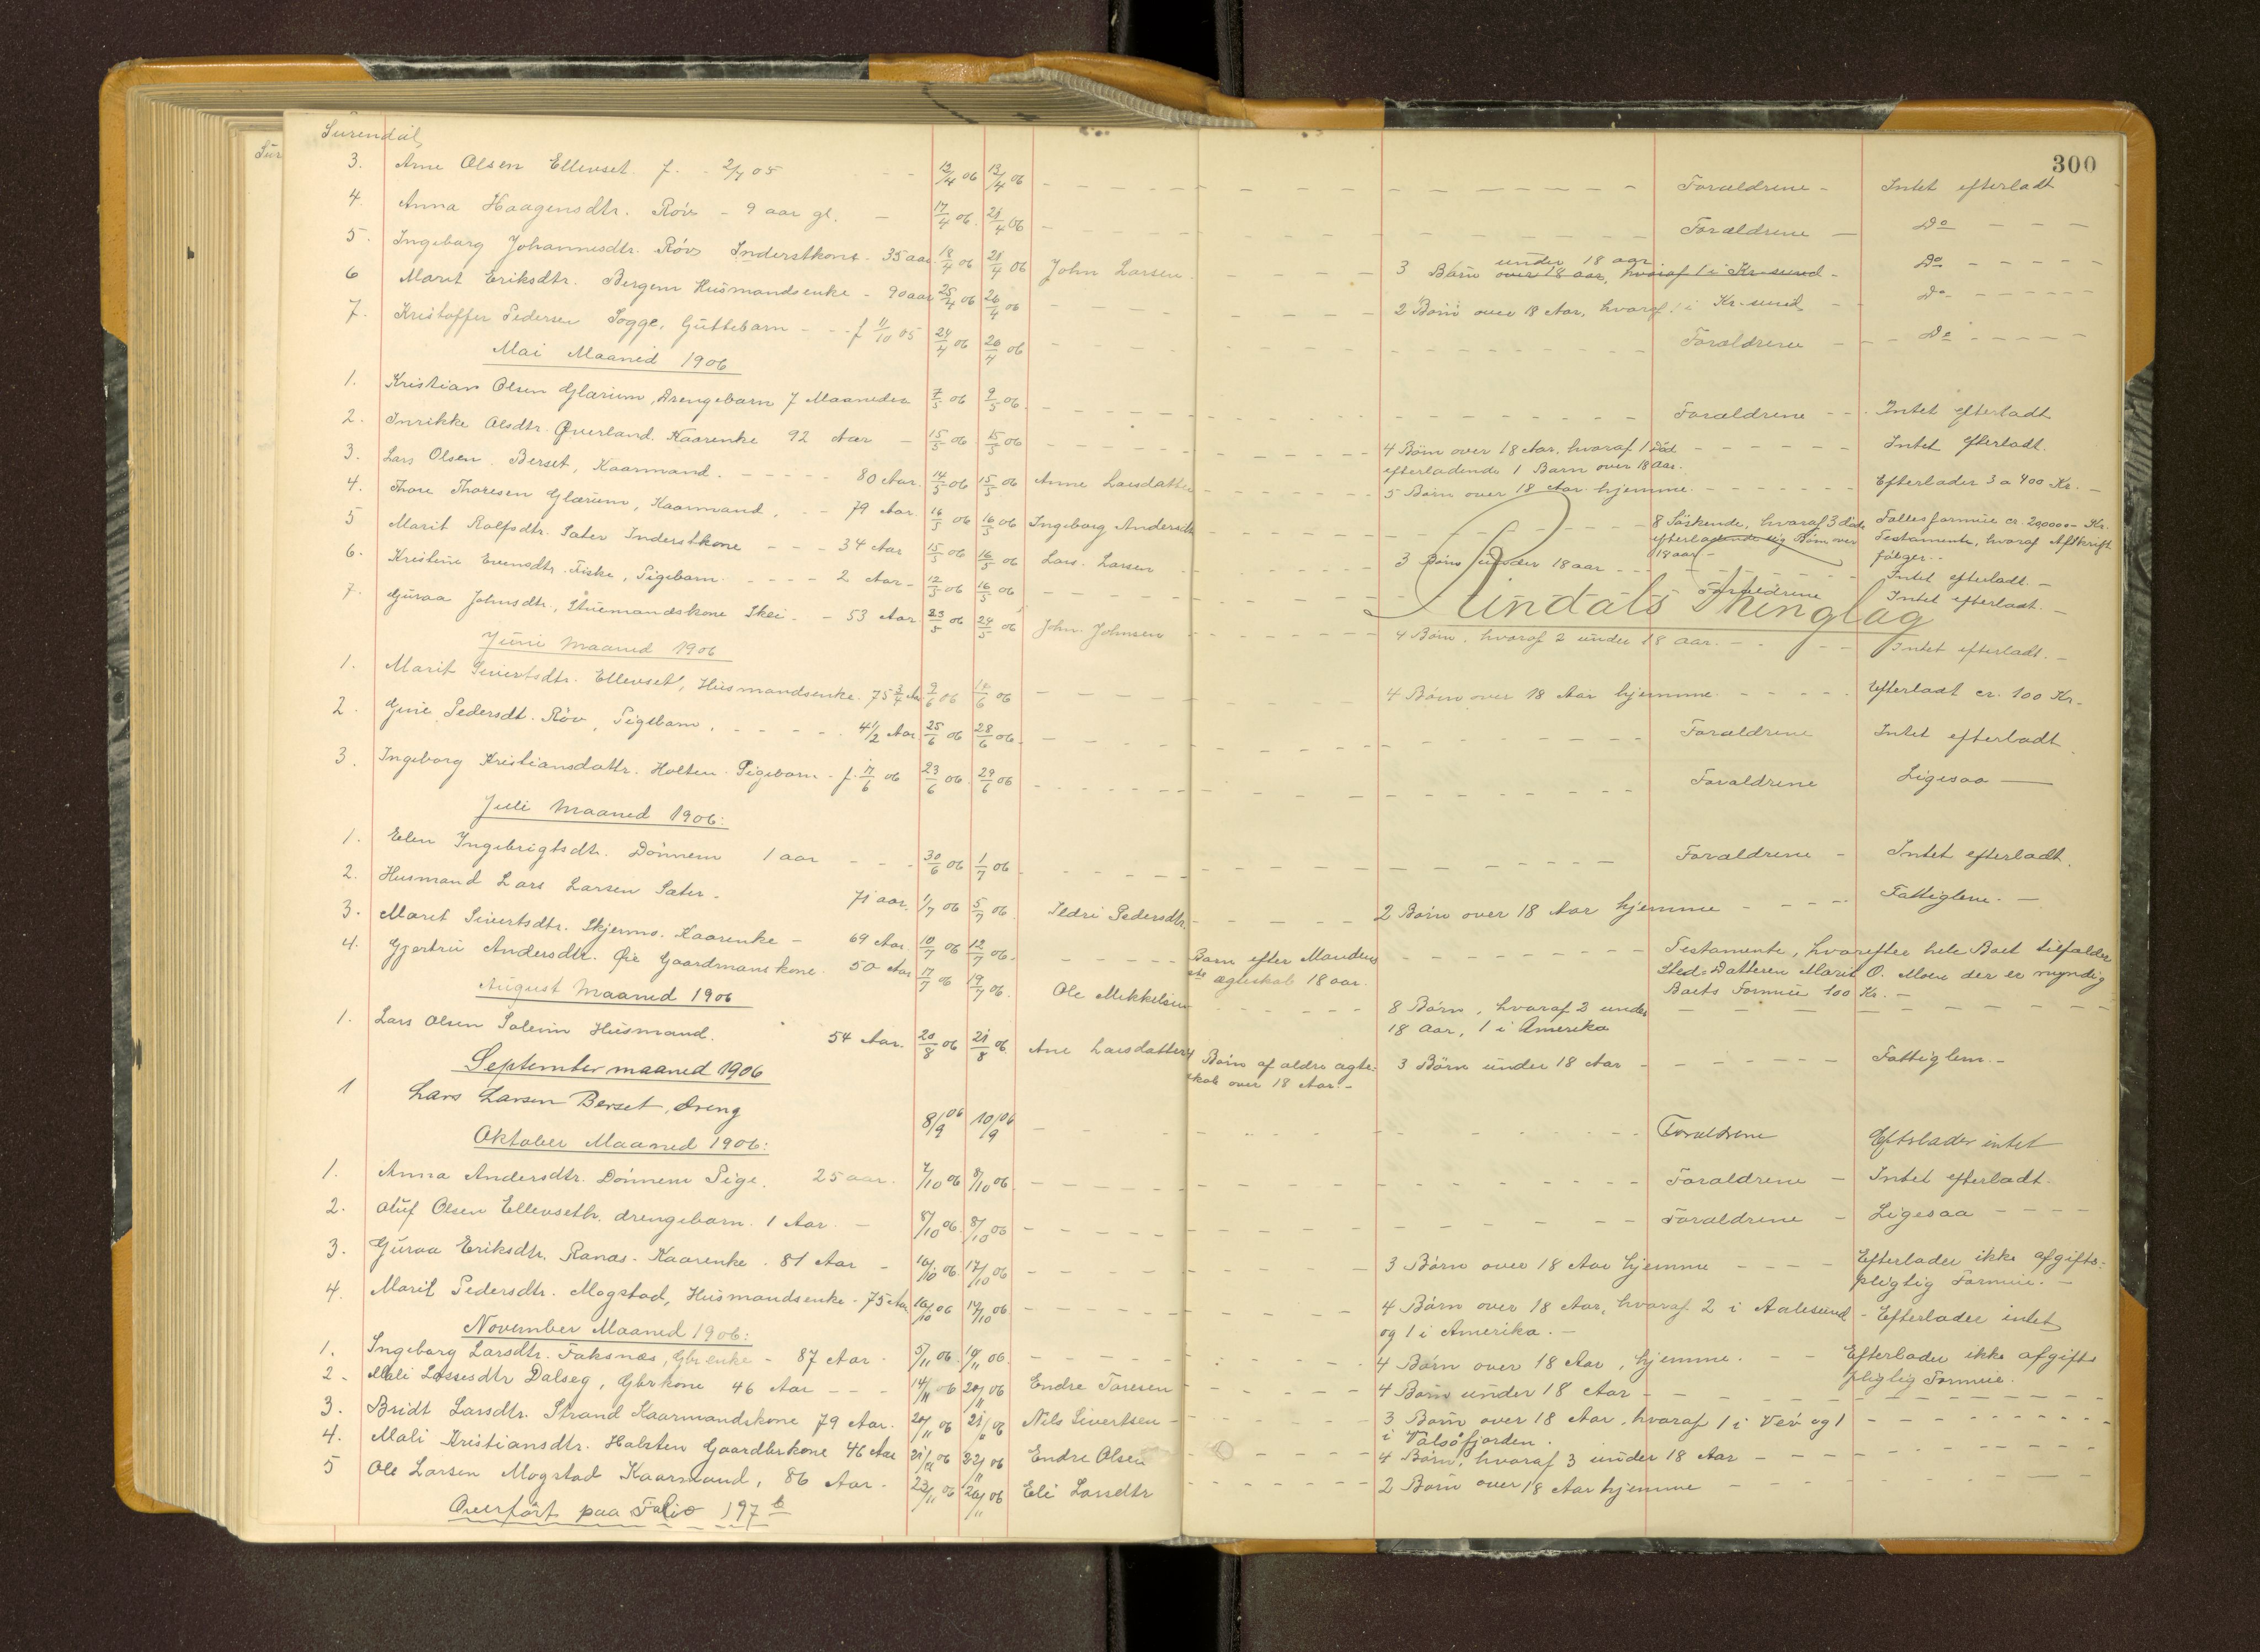 Surendal,
300
3. Arne Olsen Ellevset f. - 2/4 05 - - 12/4 06 13/4 06 - - - Forældrene - Intet efterladt
4. Anna Haagensdtr. Röv - 9 aar gl. - 17/4 06. 21/4 06 - - - Forældrene - Do - - -
5. Ingeborg Johannesdtr. Röv Inderstkone - 35 aar 18/4 06 21/4 06 John Larsen - - - 3 Börn under 18 aar over 18 aar, hvoraf 1 i Kr-sund - Do - - -
6 Marit Eriksdtr. Bergem Husmandsenke - 90 aar 25/4 06 26/4 06 - - - 2 Börn over 18 Aar, hvoraf 1 i Kr.sund - Do - - -
7. Kristoffer Pedersen Sogge, Guttebarn - - f 11/10 05 24/4 06 26/4 06 - - - Forældrene - - Do - - -
Mai Maaned 1906
1. Kristian Olsen Glærum, Drengebarn 7 Maaneder 7/5 06 9/5 06. - - - Forældrene - - Intet efterladt
2. Inrikke Olsdtr. Øverland. Kaarenke 92 Aar - 15/5 06 15/5 06 - - - 4 Börn over 18 Aar, hvoraf 1 död - - - Intet efterladt.
efterladende 1 Barn over 18 Aar.
3. Lars Olsen. Berset, Kaarmand. - - - 80 Aar. 14/5 06 15/5 06 Anne Larsdatter - - - 5 Börn over 18 Aar hjemme. - - - Efterlader 3 a 400 Kr. -
4. Thore Thoresen Glærum, Kaarmand, - - 79 Aar. 16/5 06 16/5 06 Ingeborg Andersdtr - - - 8 Söskende, hvoraf 3 döde Fællesformue cr. 20,000 - Kr.
efterladende sig Börn over Testamente, hvoraf Afskrift
18 aar - fölger. -
5 Marit Rolfsdtr. Sæter Inderstkone - - - 34 Aar 15/5 06 16/5 06 Lars Larsen - - - 3 Börn under 18 aar - - - Intet efterladt. -
6. Kristine Evensdtr. Fiske, Pigebarn. - - - 2 Aar - 12/5 06 16/5 06 - - - Forældrene Intet efterladt. -
Rindals Thinglag
7. Guraa Johnsdtr., Stuemandskone Skei - - 53 Aar 23/5 06 24/5 06 John Johnsen - - - 4 Börn, hvoraf 2 under 18 aar. - - - Intet efterladt. -
Juni Maaned 1906
1. Marit Sivertsdtr. Ellevset, Husmandsenke. 75 3/4 Aar 9/6 06 12/6 06 - - - 4 Börn over 18 Aar hjemme. - - - Efterladt cr. 100 Kr.
2. Guri Pedersdt. Röv, Pigebarn, - - - 4 1/2 Aar 25/6 06 28/6 06. - - - Forældrene Intet efterladt
3. Ingeborg Kristiansdattr. Holten. Pigebarn - f. 17/6 06 23/6 06. 29/6 06 - - - Forældrene Ligesaa -
Juli Maaned 1906:
1. Elen Ingebrigtsdtr. Dönnem 1 aar - - - 30/6 06 1/7 06 - - - Forældrene - Intet efterladt.
2. Husmand Lars Larsen Sæter. 71 aar. 1/7 06 5/7 06 Ildri Pedersdtr. - - - 2 Börn over 18 Aar hjemme - - - Fattiglem. -
3. Marit Sivertsdtr. Skjermo. Kaarenke - 69 Aar. 10/7 06 12/7 06. - - - Barn efter Mandens - - - Testamente, hvorefter hele Boet tilfalder
ste ægteskab 18 aar. Sted-Datteren Marit O. Moen der er myndig
Boets Formue 100 Kr. -
4. Gjertru Andersdtr. Øie Gaardmandskone 50 Aar 17/7 06 19/7 06. Ole Mikkelsen - - - 8 Börn, hvoraf 2 under - - -
18 Aar, 1 i Amerika
August Maaned 1906
1. Lars Olsen Solem Husmand. 54 Aar. 20/8 06 21/8 06. Ane Larsdatter 4 Börn af ældre ægte: 3 Börn under 18 Aar - - - Fattiglem. -
skab over 18 Aar. -
September maaned 1906
1 Lars Larsen Berset, dreng 8/9 06 10/9 06 - - - Forældrene Efterlader intet
Oktober Maaned 1906:
1. Anna Andersdtr. Dönnem Pige. 25 aar. 7/10 06 8/10 06. - - - Forældrene - Intet efterladt.
2. Oluf Olsen Ellevseth. drengebarn. 1 Aar. - 8/10 06. 8/10 06 - - - Forældrene - Ligesaa - - -
3. Guraa Eriksdtr. Ranæs. Kaarenke. 81 Aar - 16/10 06. 17/10 06 - - - 3 Börn over 18 Aar hjemme - - - Efterlader ikke afgifts-
pligtig Formue. -
4. Marit Pedersdtr. Mogstad, Husmandsenke - 75 Aar 16/10 06 19/10 06. - - - 4 Börn over 18 Aar, hvoraf 2 i Aalesund - Efterlader intet
og 1 i Amerika. -
November Maaned 1906:
1. Ingeborg Larsdtr. Faksnæs, Gbr enke - 87 Aar. 5/11 06. 10/11 06. - - - 4 Börn over 18 Aar, hjemme. - - Efterlader ikke afgifts
pligtig Formue.
2 - Mali Lassesdtr Dalseg, Gbrkone 46 Aar - - - 14/11 06 20/11 06 Endre Toresen - - - 4 Börn under 18 Aar - - -
3. Bridt Larsdtr. Strand Kaarmandskone 79 Aar. 20/11 06 21/11 06 Nils Sivertsen - - - 3 Börn over 18 Aar, hvoraf 1 i Vei og 1 - - -
i Valsöfjorden.
4. Mali Kristiansdtr. Halsten Gaardbrkone 46 Aar 21/11 06 22/11 06 Endre Olsen - - - 4 Börn, hvoraf 3 under 18 Aar - - -
5 Ole Larsen Mogstad Kaarmand, 86 Aar. 23/11 06 26/11 06 Eli Larsdtr - - - 2 Börn over 18 Aar hjemme - -
Overfört paa Folio 197 b